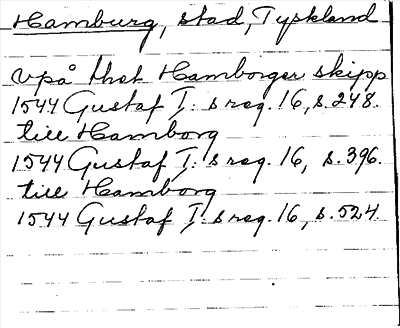 Hamburg, stad, Tyskland
vpå thet Hamborger skipp
1544 Gustaf I:s reg. 16, s. 248.
till Hamborg
1544 Gustaf I:s reg. 16, s. 396.
till Hamborg
1544 Gustaf I:s reg. 16, s. 524.